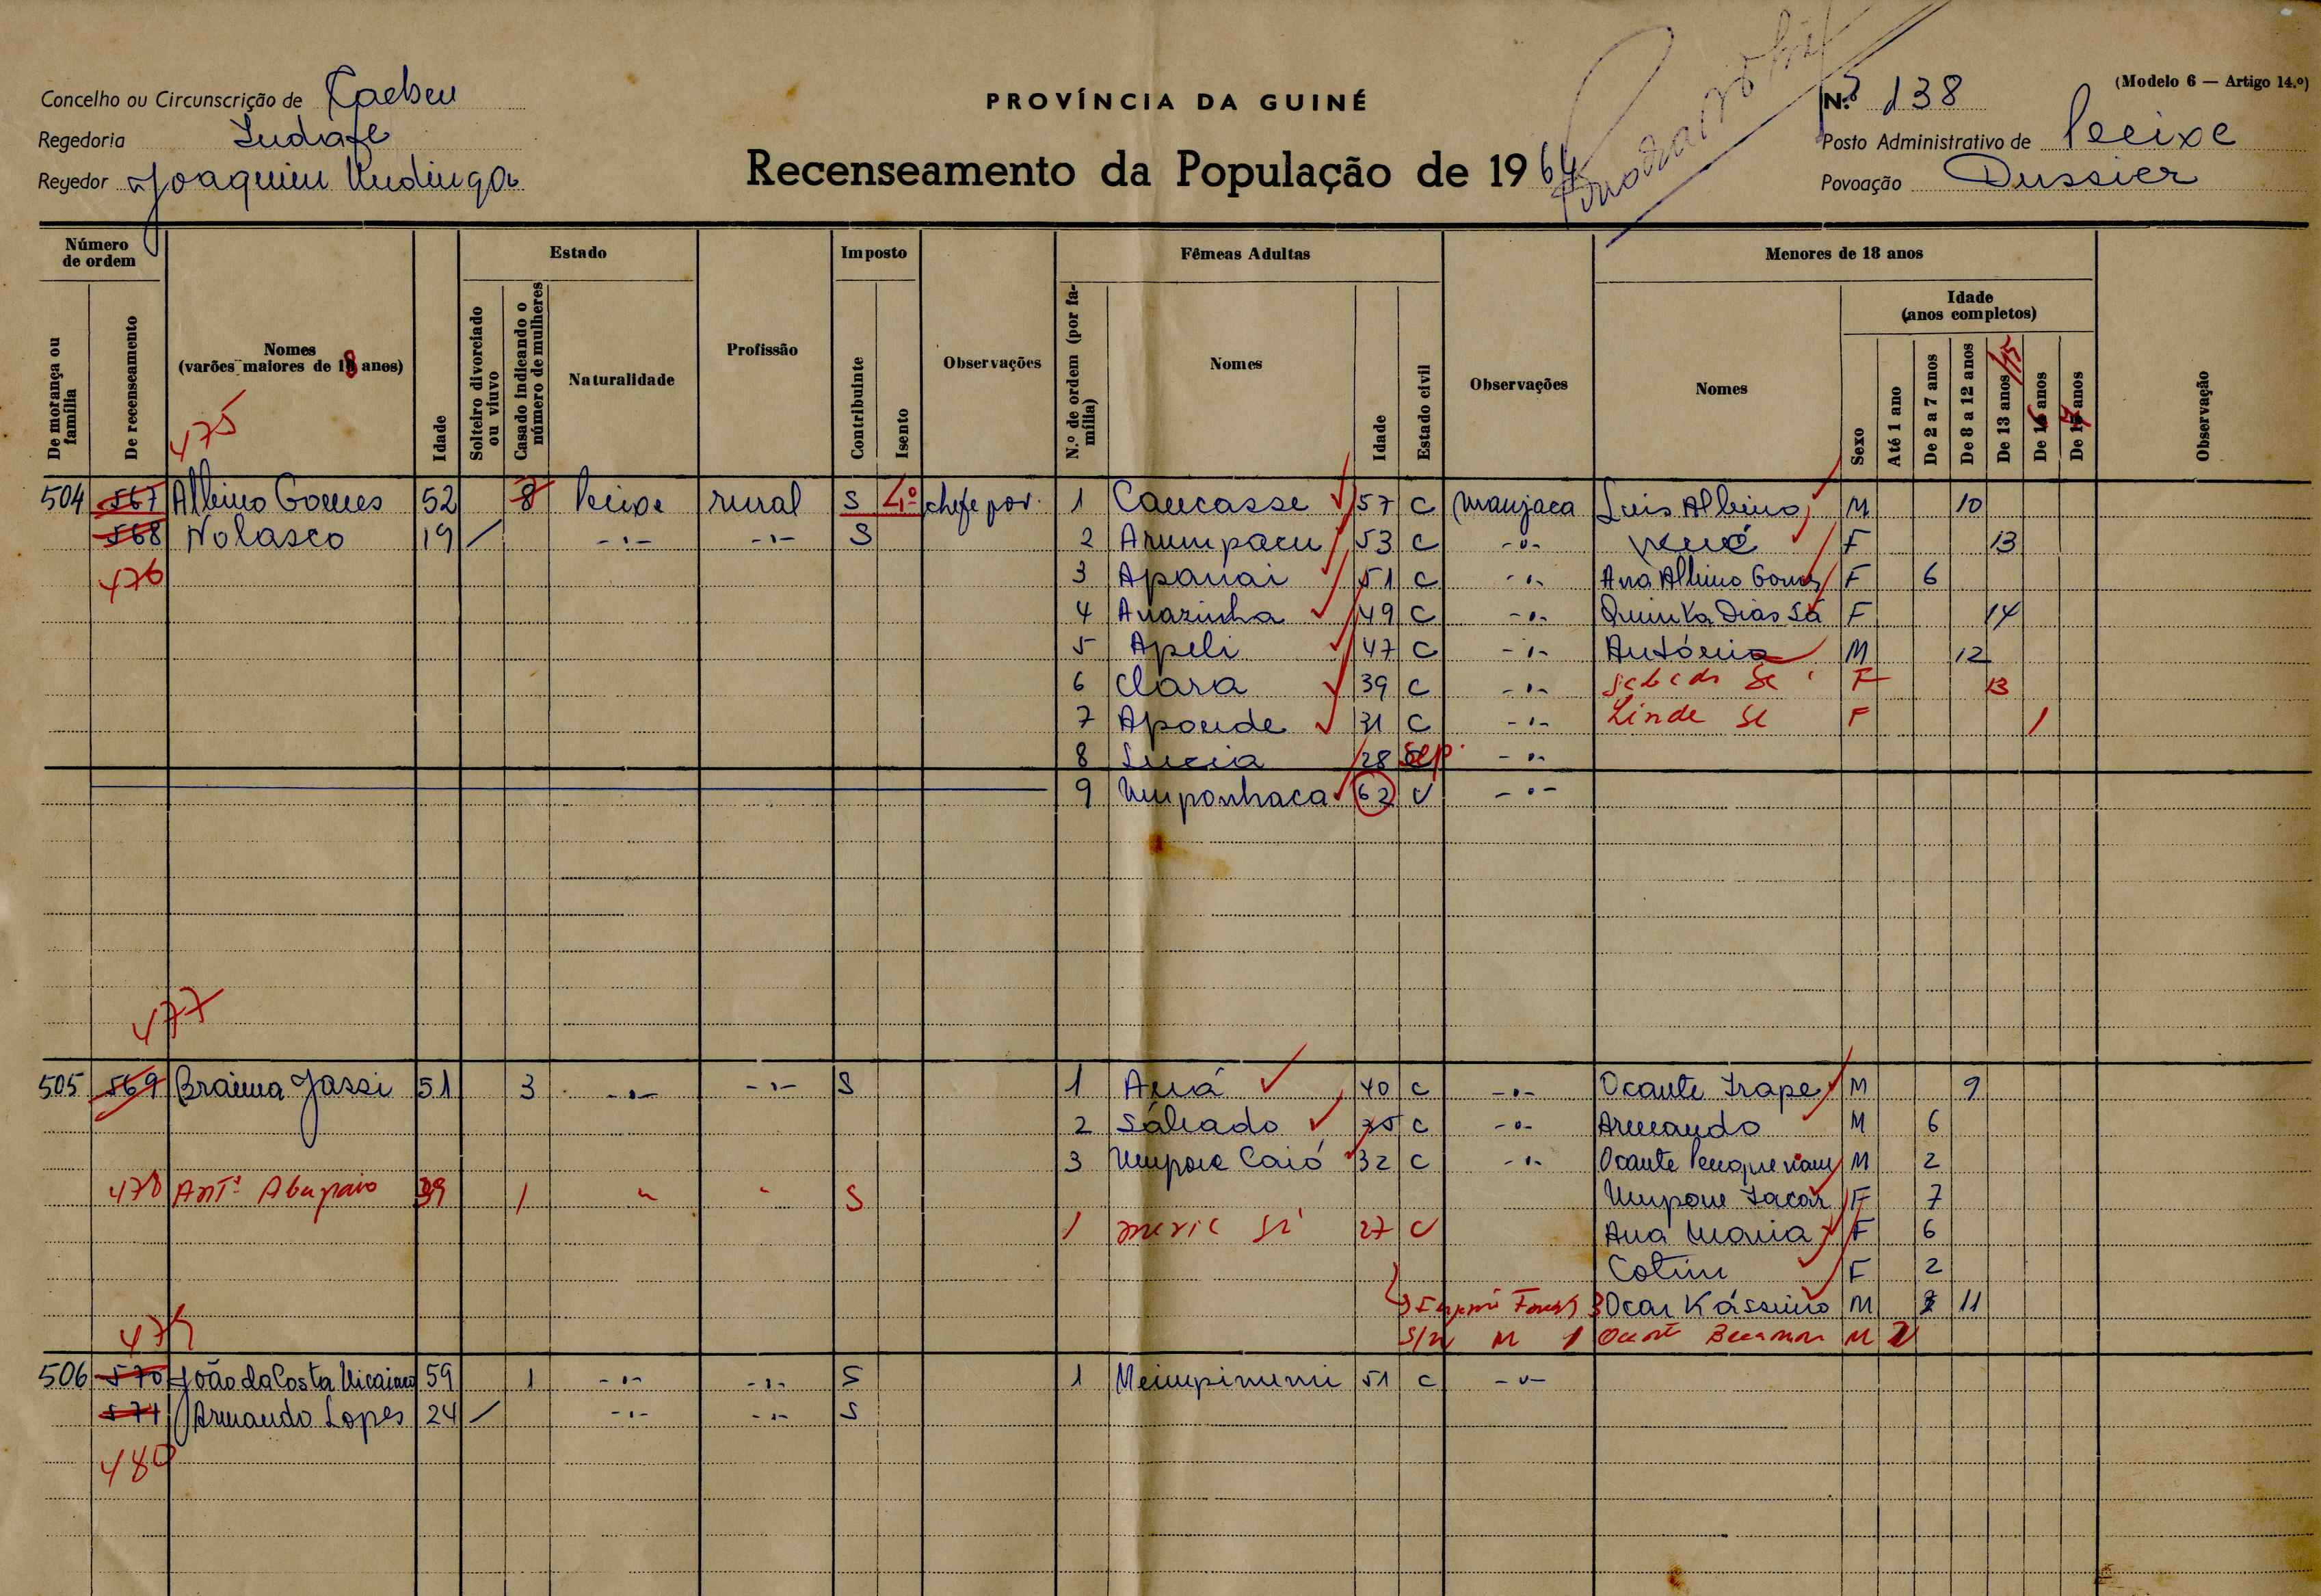 PROVÍNCIA DA GUINÉ
(Modelo 6 — Artigo 14.º)
Concelho ou Circunscrição de Caebeu
Nº 138
Regedoria
Posto Administrativo de Peeixe
Recenseamento da População de 1964
Regedor Joaquim
Povoação Dussier
Número de ordem
Estado
Imposto
Fêmeas Adultas
Menores de 18 anos
De morança ou família
De recenseamento
Nomes (varões maiores de 18 anos)
Idade
Solteiro divorciado ou viuvo
Casado indicando o número de mulheres
Naturalidade
Profissão
Contribuinte
Isento
Observações
N.º de ordem (por família)
Nomes
Idade
Estado civil
Observações
Nomes
Sexo
Idade (anos completos)
Até 1 ano
De 2 a 7 anos
De 8 a 12 anos
De 13 anos /15
De 16 anos
De 17 anos
Observação
475
504 567 Albino Gomes 52 8 rural S 4º chefe pov. 1 Caucasse 57 C Manjaca Luis Albino M 10
568 Nolasco 19 / -"- -"- S 2 Arumpacu 53 C -"- F 13
476 3 Apanai 51 C -"- Ana Albino Gomes F 6
4 Anazinha 49 C -"- Quinta Dias Sá F 14
5 Apeli 47 C -"- António M 12
6 Clara 39 C -"- F 13
7 Apoude 31 C -"- Linde Se F 1
8 Lucia 28 Sep. -"-
9 Umponhaca 62 V -"-
477
505 569 Braima Jassi 51 3 -"- -"- S 1 Auá 40 C -"- Ocante Irape M 9
2 Sábado 35 C -"- Armando M 6
3 Umpone Caió 32 C -"- Ocante M 2
478 Antº 39 1 " " S Umpone Jacar F 7
1 27 C Ana Maria F 6
Cotim F 2
Ocar Kássimo M 11
S/N M 1 M 2
479
506 570 João da Costa 59 1 -"- -"- S 1 Meimpinumi 51 C -"-
571 Armando Lopes 24 / -"- -"- S
480